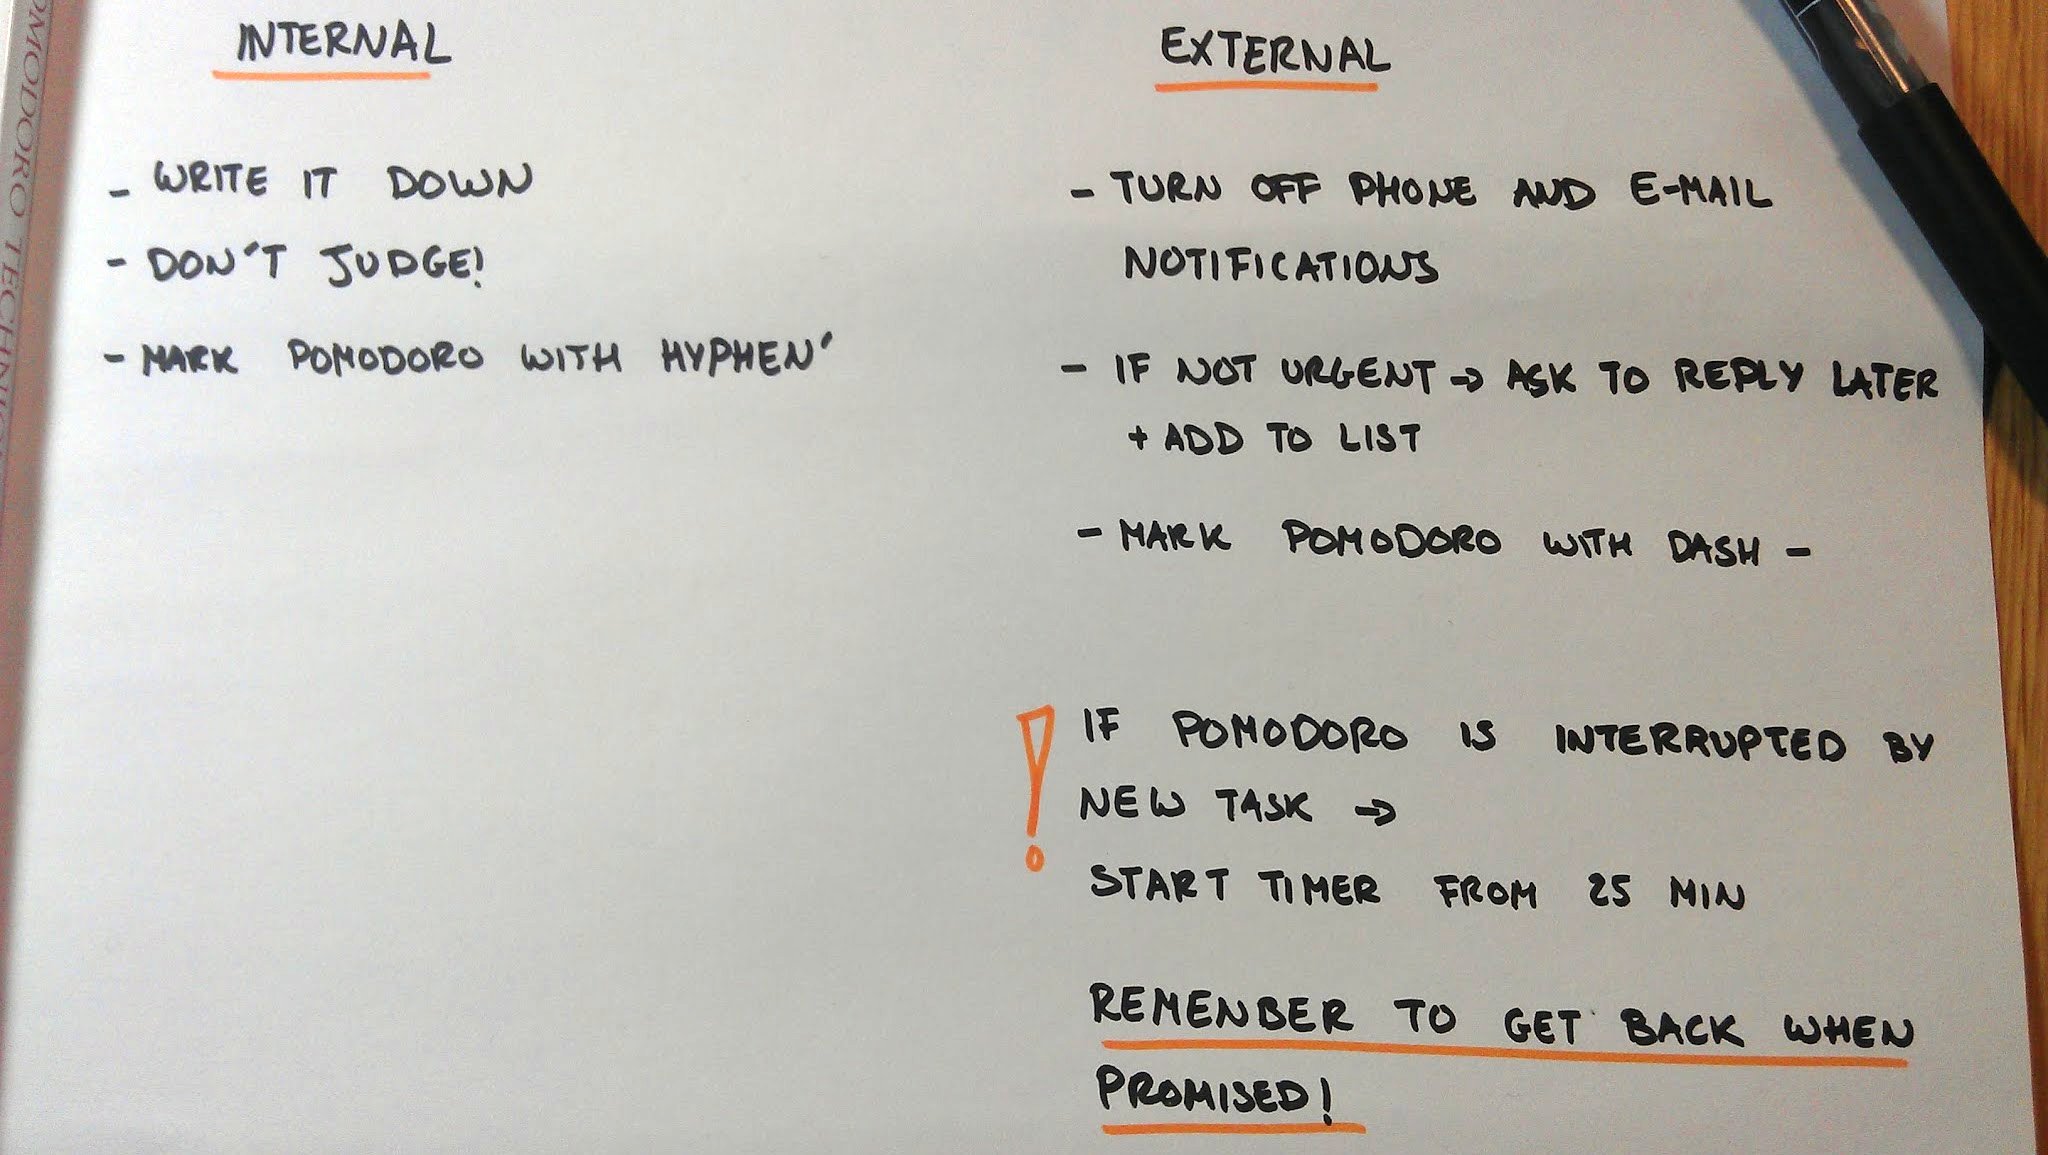 INTERNAL
- WRITE IT DOWN
- DON'T JUDGE!
- MARK POMODORO WITH HYPHEN '
EXTERNAL
- TURN OFF PHONE AND E-MAIL
NOTIFICATIONS
- IF NOT URGENT → ASK TO REPLY LATER
+ ADD TO LIST
- MARK POMODORO WITH DASH -
! IF POMODORO IS INTERRUPTED BY
NEW TASK →
START TIMER FROM 25 MIN
REMENBER TO GET BACK WHEN
PROMISED!
OMODORO TECHNIQU